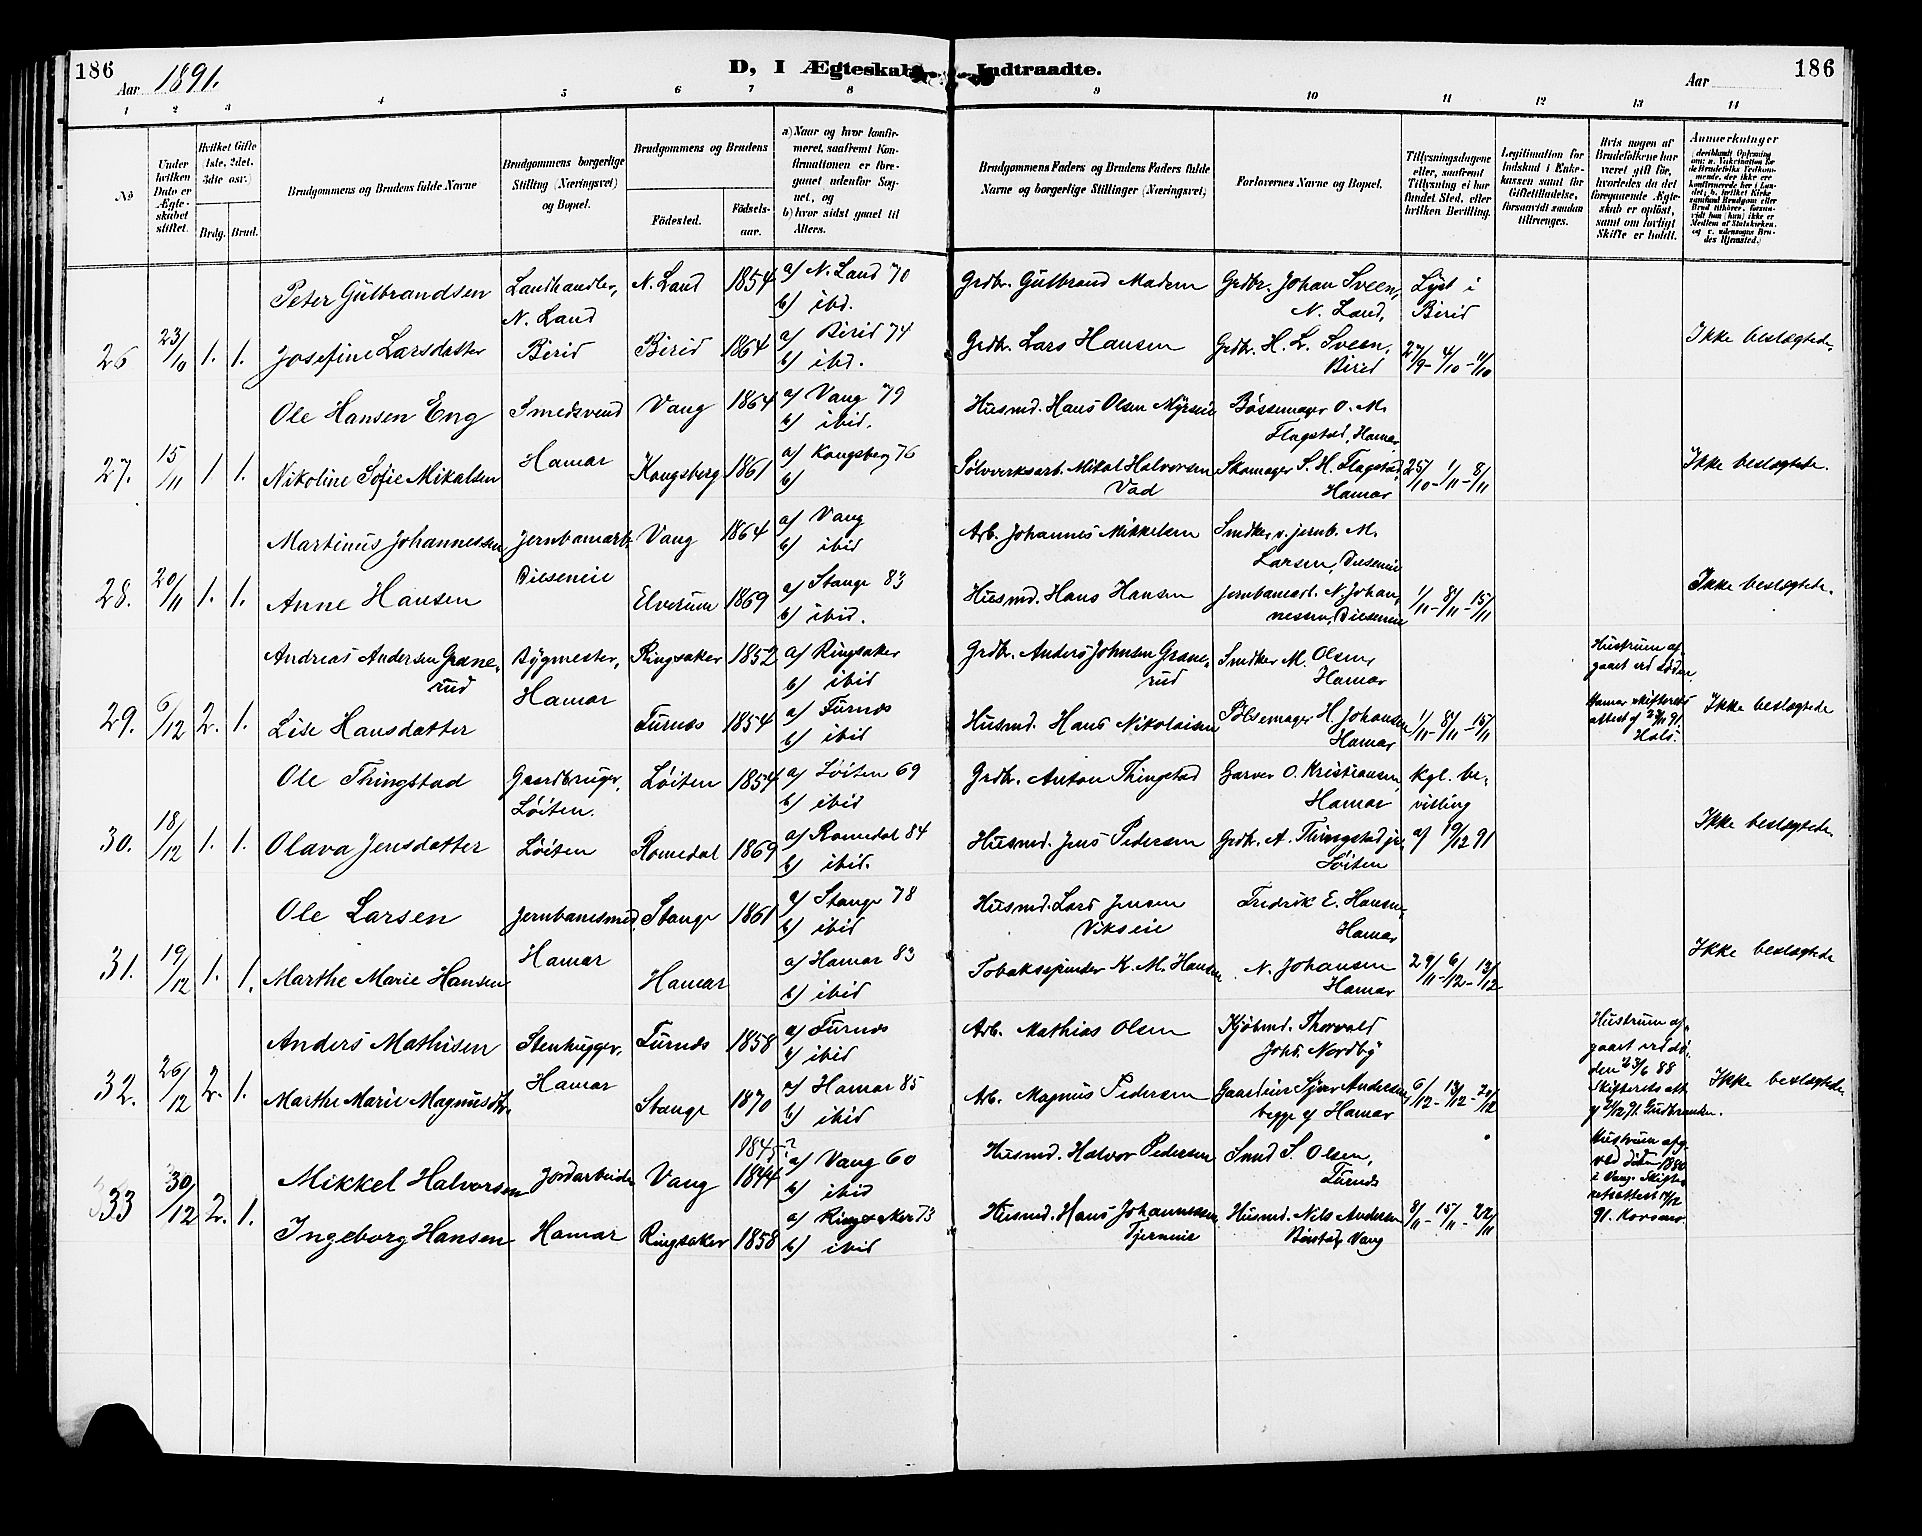 186
Aar 1891.
D, I Ægteskab Indtraadte.
Aar
186
1 2 3 4 5 6 7 8 9 10 11 12 13 14
No
Under hvilken Dato er Ægteskabet stiftet.
Hvilket Gifte 1ste, 2det, 3die osv.
Brdg. Brud.
Brudgommens og Brudens fulde Navne
Brudgommens borgerlige Stilling (Næringsvei) og Bopæl.
Brudgommens og Brudens
Födested.
Födselsaar.
a) Naar og hvor konfirmeret, saafremt Konfirmationen er foregaaet udenfor Sognet, og
b) hvor sidst gaaet til Alters.
Brudgommens Faders og Brudens Faders fulde Navne og borgerlige Stillinger (Næringsvei)
Forlovernes Navne og Bopæl.
Tillysningsdagene eller, saafremt Tillysning ei har fundet Sted, efter hvilken Bevilling.
Legitimation for Indskud i Enkekassen samt for Giftetilladelse, forsaavidt saadan tiltrænges.
Hvis nogen af Brudefolkene har været gift før, hvorledes da det foregaaende Ægteskab er opløst, samt om lovligt Skifte er holdt.
Anmærkninger
Peter Gulbrandsen Landhandler, N. Land N. Land 1854 a) N. Land 70 b) ibd. Grdbr. Gulbrand Madsen Grdbr. Johan Sveen, N. Land, Lyst i Birid
26 23/10 1. 1. Josefine Larsdatter Birid Birid 1864 a) Birid 74 b) ibd. Grdbr. Lars Hansen Grdbr. H. L. Sveen, Birid 27/9 - 4/10 - 11/10 Ikke beslægtede.
Ole Hansen Eng Smedsvend Vang 1864 a) Vang 79 b) ibid. Husmd. Hans Olsen Myrseie Bössemager O. M. Flagstad, Hamar
27. 15/11 1. 1. Nikoline Sofie Mikalsen Hamar Kongsberg 1861 a) Kongsberg 76 b) Sølvverksarb. Mikal Halvorsen Vad Skomager S. H. Flagstad, Hamar 25/10 - 1/11 - 8/11 Ikke beslægtede.
Martinus Johannessen Jernbanearb. Vang 1864 a) Vang b) ibid Arb. Johannes Mikkelsen Smdker v. jernb. M. Larsen, Diseneie
28. 20/11 1. 1. Anne Hansen Diseneie Elverum 1869 a) Stange 83 b) ibid. Husmd. Hans Hansen Jernbanearb. N. Johannessen, Diseneie 1/11 - 8/11 - 15/11 Ikke beslægtede.
Andreas Andersen Granerud Bygmester, Ringsaker 1852 a) Ringsaker b) ibid Grdbr. Anders Johnsen Granerud Smdker M. Olsen, Hamar Hustruen afgaaet ved Döden.
29. 6/12 2. 1. Lise Hansdatter Hamar Furnes 1854 a) Furnes b) ibid Husmd. Hans Nikolaisen Pölsemager H. Johansen Hamar 1/11 - 8/11 - 15/11 Hamar skifterets attest Ikke beslægtede
Ole Thingstad Gaardbruger, Löiten. Löiten 1854 a) Löiten 69 b) ibid Grdbr. Anton Thingstad Garver O. Kristiansen, Hamar Kgl. bevilling
30. 18/12 1. 1. Olava Jensdatter Löiten Romedal 1869 a) Romedal 84 b) ibid. Husmd. Jens Pedersen Grdbr. A. Thingstad jr. Löiten af 19/12 91 Ikke beslægtede.
Ole Larsen Jernbanesmed, Stange 1861 a) Stange 78 b) ibid Husmd. Lars Jensen Vikseie Fredrik E. Hansen, Hamar
31. 19/12 1. 1. Marthe Marie Hansen Hamar Hamar a) Hamar 83 b) ibid Tobaksspinder K. M. Hansen N. Johansen Hamar 29/11 - 6/12 - 13/12 Ikke beslægtede
Anders Mathisen Stenhugger, Furnes 1858 a) Furnes b) ibid Arb. Mathias Olsen Kjöbmd. Thorvald Johs. Nordby Hustruen afgaaet ved döden 23/6 88
32. 26/12 2. 1. Marthe Marie Magnusdtr. Hamar Stange 1870 a) Hamar 85 b) ibid Arb. Magnus Pedersen Gaardeier Andersen, begge af Hamar 6/12 - 13/12 - 20/12 Skifterets att. Gudbrandsen. Ikke beslægtede
Mikkel Halvorsen Jordarbeider Vang 1845? 1844 a) Vang 60 b) ibid Husmd. Halvor Pedersen Smed S. Olsen, Furnes Hustruen afg. ved döden i Vang.
33 30/12 2. 1. Ingeborg Hansen Hamar Ringsaker 1858 a) Ringsaker 73 b) ibid Husmd. Hans Johannessen Tjerneie Husmd. Nils Andersen Vang 8/11 - 15/11 - 22/11